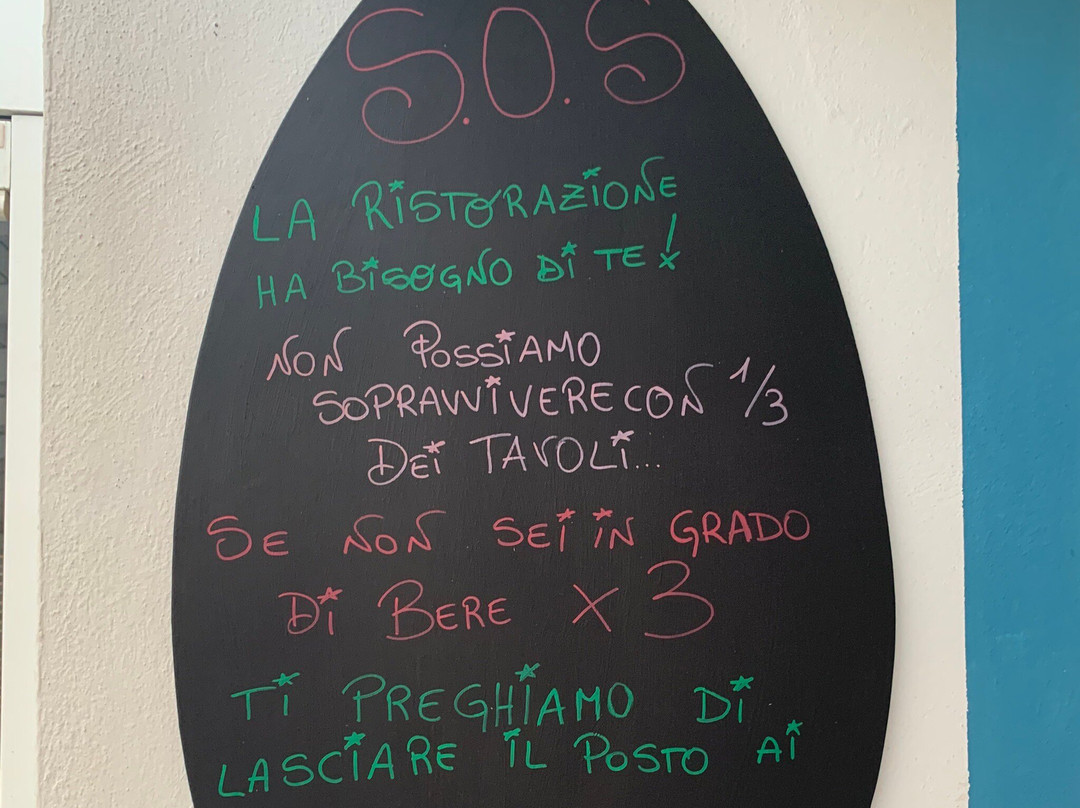 S.O.S
LA RiSTORAZiONE
HA BiSOGNO Di TE!
NON POSSiAMO
SOPRAVViVERE CON 1/3
DEi TAVOLi...
SE NON SEi iN GRADO
Di BERE X 3
Ti PREGHiAMO Di
LASCiARE iL POSTO Ai